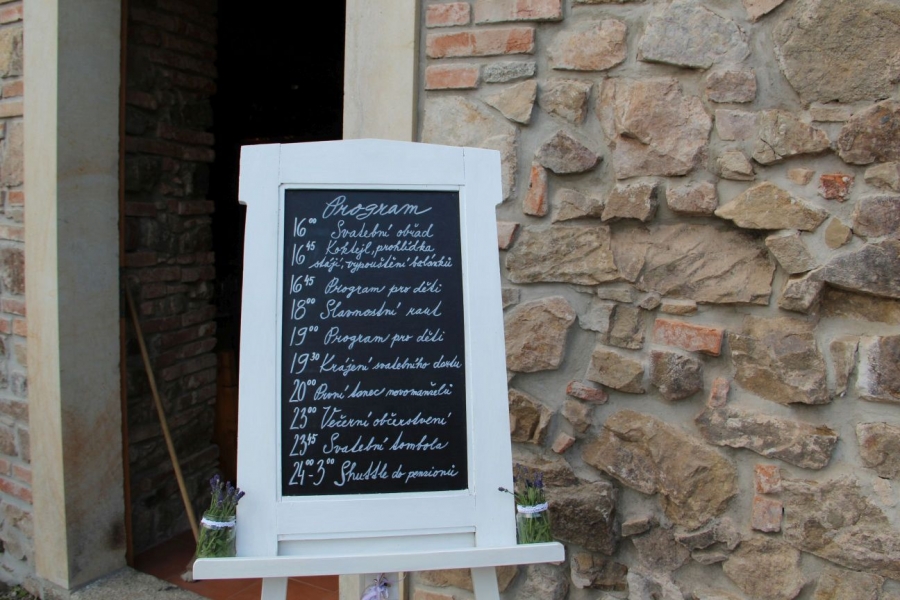 Program
16⁰⁰ Svatební obřad
16⁴⁵ Koktejl, prohlídka
stájí, vypouštění balónků
16⁴⁵ Program pro děti
18⁰⁰ Slavnostní raut
19⁰⁰ Program pro děti
19³⁰ Krájení svatebního dortu
20⁰⁰ První tanec novomanželů
23⁰⁰ Večerní občerstvení
23⁴⁵ Svatební tombola
24⁰⁰-3⁰⁰ Shuttle do pensionu